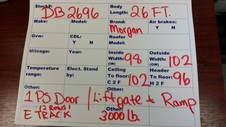 Stock#: DB2696 Body Length: 26 FT.
Make: Model: Brand: Morgan Air brakes: Y N
Gvw: CDL: Y N Reefer Model:
Mileage: Year: Inside Width: 98 Outside Width: 102
Temperature range: Elect. Stand by: Ceiling To floor: 102 Floor To H: 96
C 2 F H 2 F
Other: Other:
1 PS Door / Liftgate & Ramp
12 Road 1 Other:
E TRACK 3000 Lb